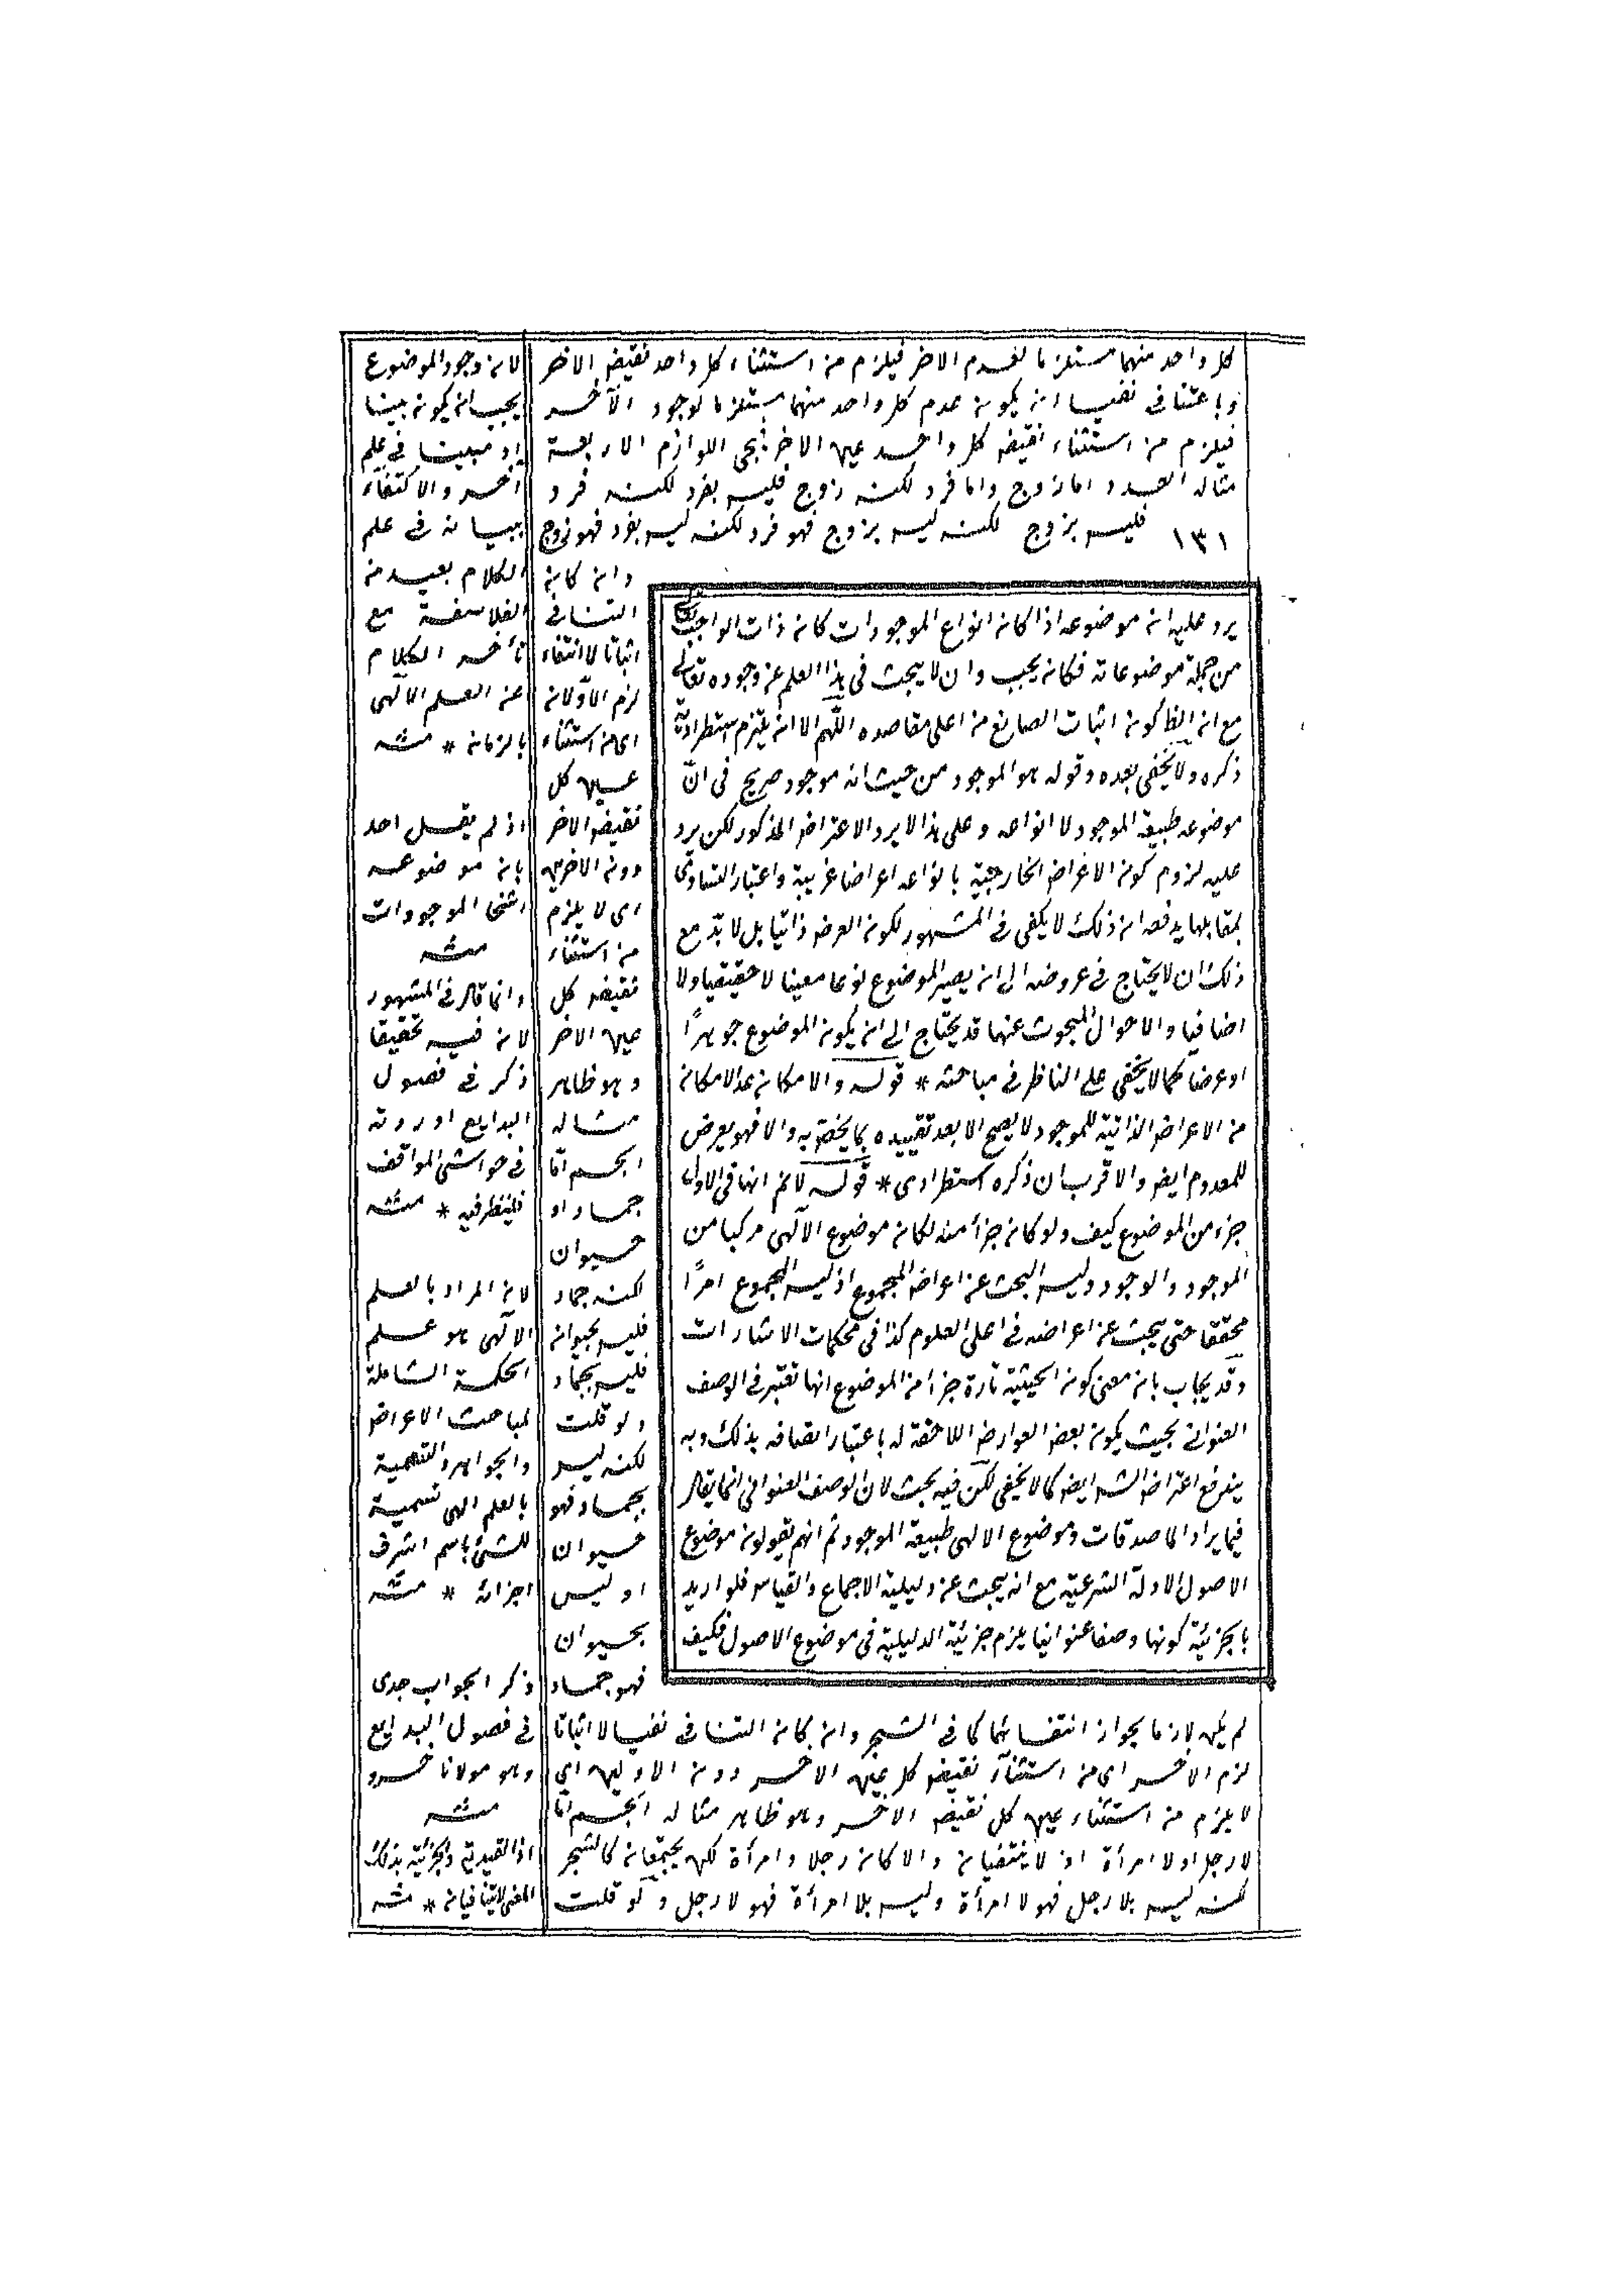 كل واحد منهما مستلزما لعدم الاخر فيلزم من استثناء كل واحد نقيض الاخر
وباعتنافى نفيا ان يكون عدم كل واحد منهما مستلزما لوجود الآخر
فيلزم من استثناء نقيض كل واحد عين الاخر فيجى اللوازم الاربعة
مثاله العدد اما زوج واما فرد لكنه زوج فليس بفرد لكنه فرد
١٣١ فليس بزوج لكنه ليس بزوج فهو فرد لكنه ليس بفرد فهو زوج
وان كان
التنافى
اثباتا لا انتفاء
لزم الاولان
اى من استثناء
عين كل
نقيض الاخر
دون الاخرين
اى لا يلزم
من استثناء
نقيض كل
عين الاخر
وهو ظاهر
مثاله
الجسم اما
جماد او
حيوان
لكنه جماد
فليس بحيوان
فليس بجماد
ولو قلت
لكنه ليس
بجماد فهو
حيوان
او ليس
بحيوان
فهو جماد
لم يكن لازما لجواز انتفائهما كما فى الشجر وان كان التنافى نفيا لا اثباتا
لزم الاخر اى من استثناء نقيض كل عين الاخر دون الاولين اى
لا يلزم من استثناء عين كل نقيض الاخر وهو ظاهر مثاله الجسم اما
لا رجل او لا امرأة اذ لا ينتفيان والا كان رجلا وامرأة لكن يجتمعان كالشجر
لكنه ليس بلا رجل فهو لا امرأة وليس بلا امرأة فهو لا رجل ولو قلت
يرد عليه ان موضوعه اذا كان انواع الموجودات كان ذات الواجب
من جملة موضوعاته فكان يجب وان لا يبحث فى هذا العلم عن وجوده تعالى
مع ان الظ كون اثبات الصانع من اعلى مقاصده اللهم الا ان يلتزم استطرادية
ذكره ولا يخفى بعده وقوله هو الموجود من حيث انه موجود صريح فى انّ
موضوعه طبيعة الموجود لا انواعه وعلى هذا لا يرد الاعتراض المذكور لكن يرد
عليه لزوم كون الاعراض الخارجية بانواعه اعراضا غريبة واعتبار التساوى
بمقابلها يدفعه ان ذلك لا يكفى فى المشهور لكون العرض ذاتيا بل لا بدّ مع
ذلك ان لا يحتاج فى عروضه الى ان يصير الموضوع نوعا معينا لا حقيقيا ولا
اضافيا والاحوال المبحوث عنها قد يحتاج الى ان يكون الموضوع جوهرًا
او عرضا كما لا يخفى على الناظر فى مباحثه * قوله والامكان عد الامكان
من الاعراض الذاتية للموجود لا يصح الا بعد تقييده بما يخص به والا فهو يعرض
للمعدوم ايض والاقرب ان ذكره استطرادى * قوله لانم انها فى الاول
جزء من الموضوع كيف ولو كان جزأ منه لكان موضوع الآلهى مركبا من
الموجود والوجود وليس البحث عن اعراض المجموع اذ ليس المجموع امرًا
محققا حتى يبحث عن اعراضه فى اعلى العلوم كذا فى محكمات الاشارات
وقد يجاب بان معنى كون الحيثية تارة جزأ من الموضوع انها تعتبر فى الوصف
العنوانى بحيث يكون بعض العوارض اللاحقة له باعتبار اتصافه بذلك وبه
يندفع اعتراض الش ايض كما لا يخفى لكن فيه بحث لان الوصف العنوانى انما يقال
فيما يراد الماصدقات وموضوع الالهى طبيعة الموجود ثم انهم يقولون موضوع
الاصول الادلة الشرعية مع انه يبحث عن دليلية الاجماع والقياس فلو اريد
بالجزئية كونها وصفا عنوانيا يلزم جزئية الدليلية فى موضوع الاصول فكيف
لان وجود الموضوع
يجب ان يكون بينا
او مبينا فى علم
آخر والاكتفاء
ببيانه فى علم
الكلام بعيد من
الفلاسفة مع
تأخر الكلام
عن العلم الآلهى
بالزمان * منه
اذ لم يقل احد
بان موضوعه
اشخا الموجودات
منه
وانما قال فى المشهور
لان فيه تحقيقا
ذكر فى فصول
البدايع اوردته
فى حواشى المواقف
فلينظر فيه * منه
لان المراد بالعلم
الآلهى هو علم
الحكمة الشاملة
لمباحث الاعراض
والجواهر والتسمية
بالعلم الهى تسمية
للشئ باسم اشرف
اجزائه * منه
ذكر الجواب جدى
فى فصول البدايع
وهو مولانا خسرو
منه
اذ القيدية والجزئية بذلك
المعنى لا يتنافيان * منه